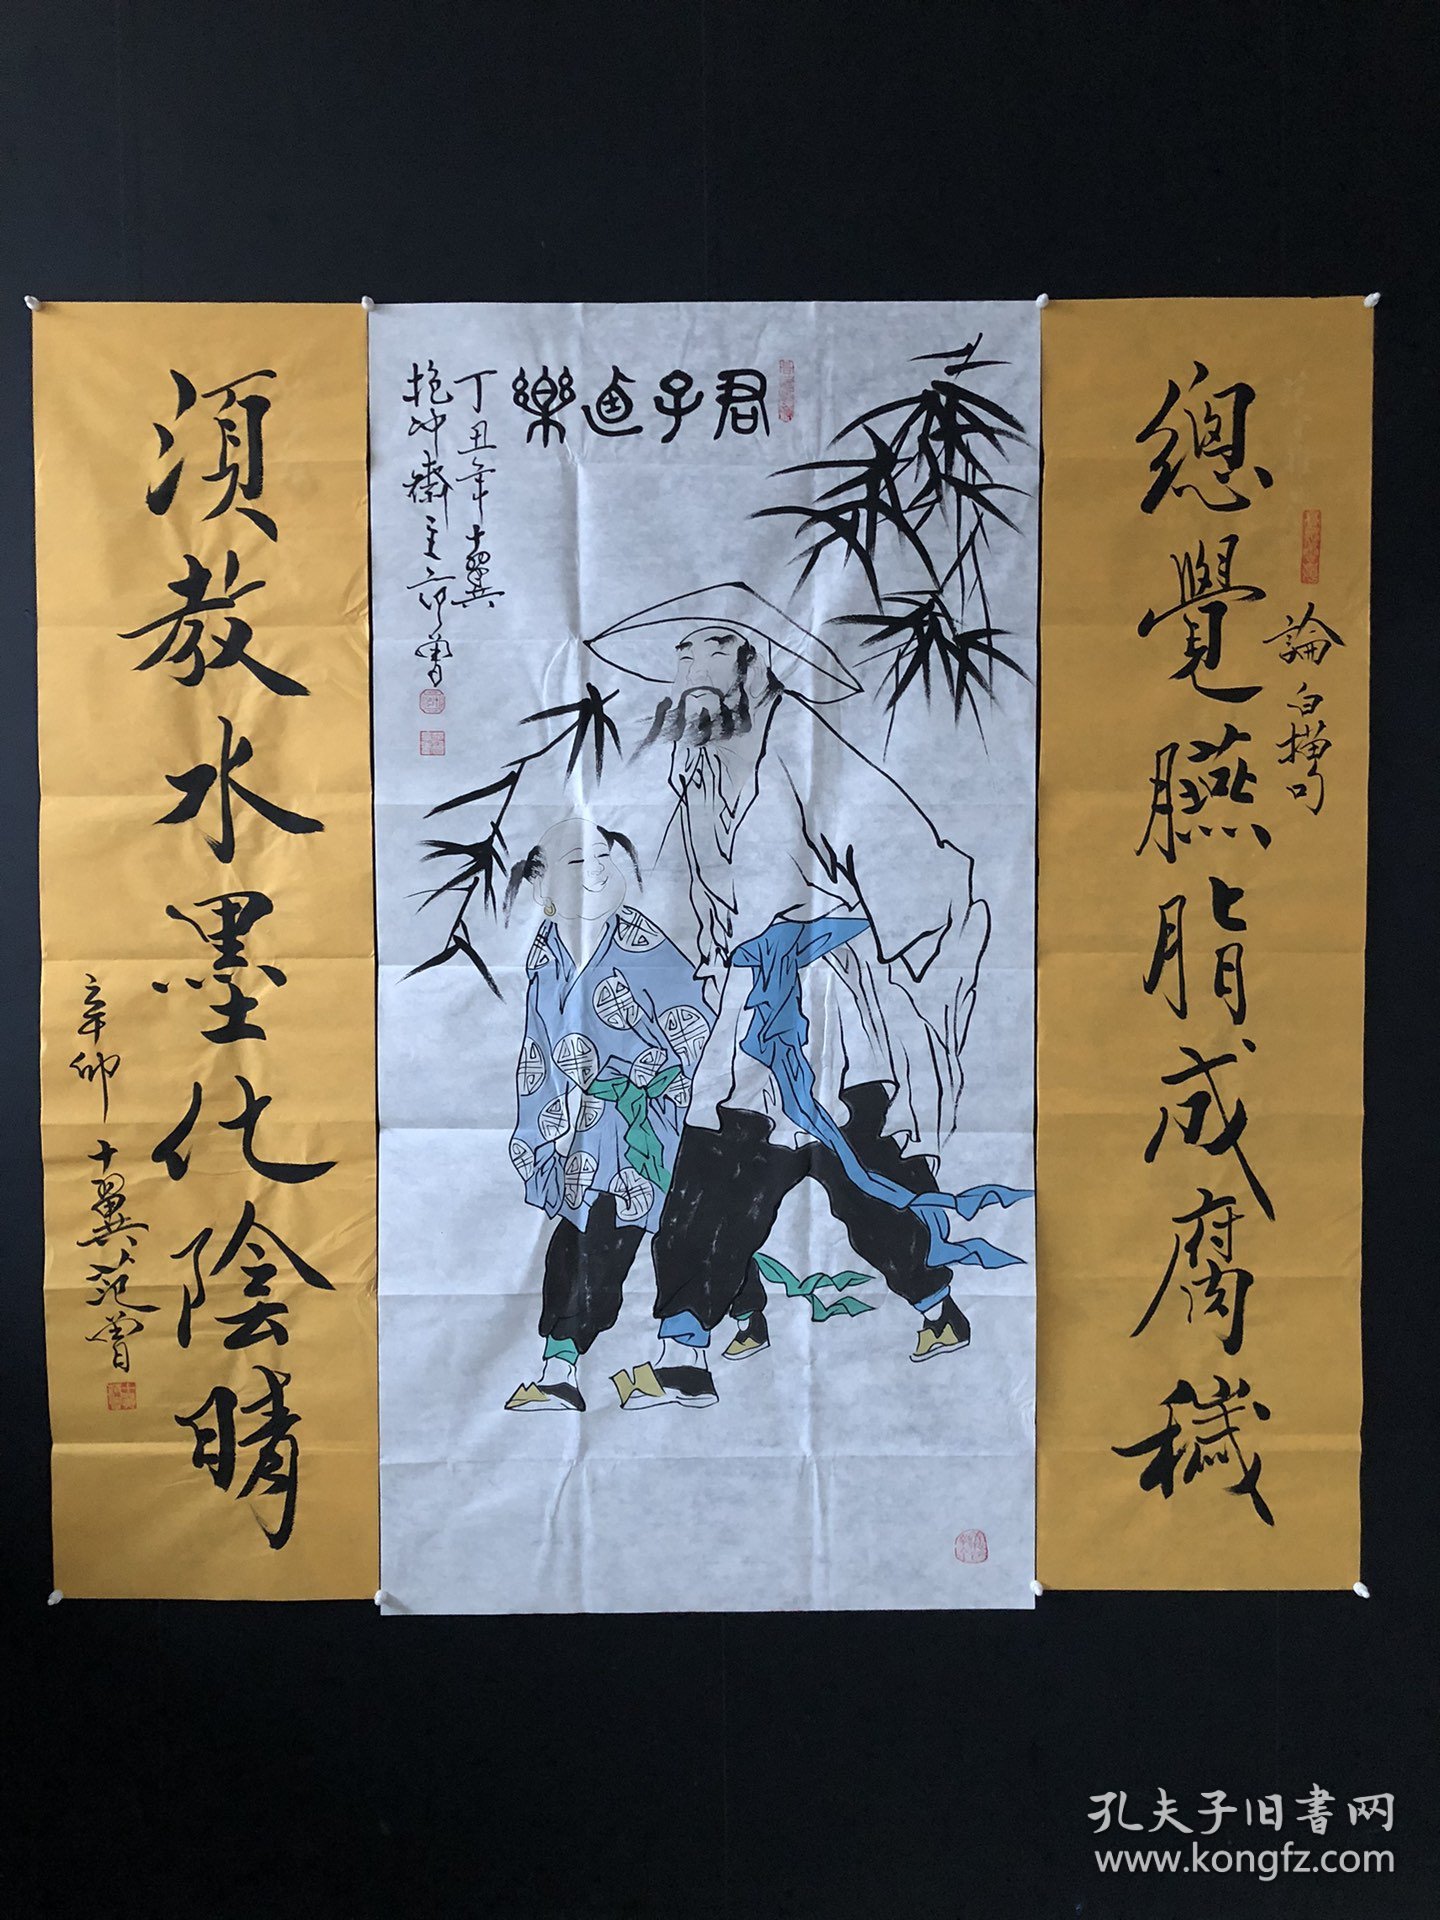 論白描句
總覺臙脂成腐穢
君子卣樂
丁丑年十翼
抱冲齋主范曾
須教水墨化陰晴
辛卯十翼范曾
孔夫子旧书网
www.kongfz.com